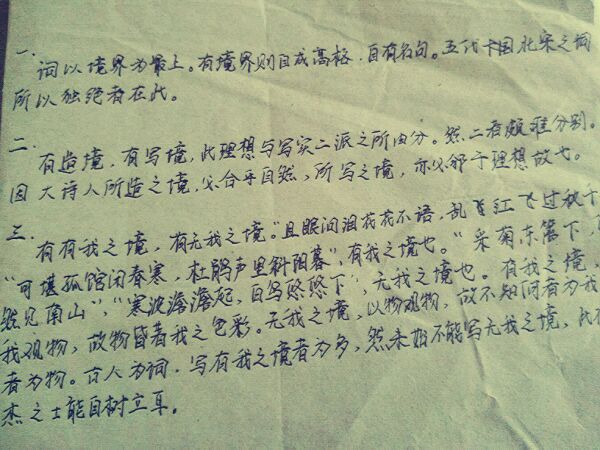 一.
词以境界为最上。有境界则自成高格,自有名句。五代卡国北宋之词
所以独绝者在此。
二.
有造境,有写境,此理想与写实二派之所由分。然二者颇难分别。
因大诗人所造之境,必合乎自然,所写之境,亦必邻于理想故也。
三.
有有我之境,有无我之境。"且眼问泪花花不语,乱飞红飞过秋千
"可堪孤馆闭春寒,杜鹃声里斜阳暮",有我之境也。"采菊东篱下,
然见南山","寒波澹澹起,白鸟悠悠下",无我之境也。有我之境,
我观物,故物皆者我之色彩。无我之境,以物观物,故不知何者为我
者为物。古人为词,写有我之境者为多,然未始不能写无我之境,此在
杰之士能自树立耳。